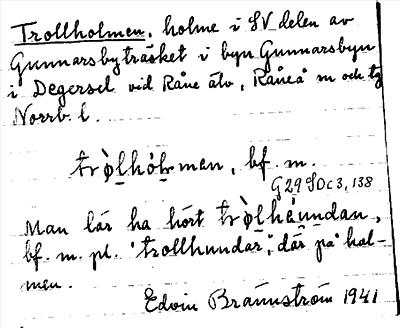 Trollholmen, holme i SV delen av
Gunnarsbyträsket i byn Gunnarsbyn
i Degersel vid Råne älv, Råneå sn och tg
Norrb. l.
bf. m.
G 29 SO c 3, 138
Man lär ha hört
bf. m. pl. "trollhundar", där på hol-
men.
Edvin Brännström 1941